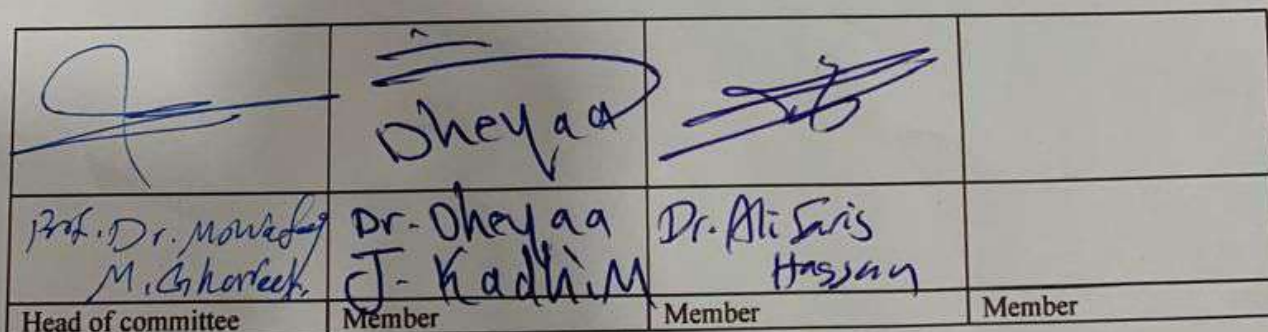 Dheyaa
Prof. Dr. Mowafaq
M. Ghareeb.
Dr. Dheyaa
J. Kadhim
Dr. Ali Faris
Hassan
Head of committee
Member
Member
Member